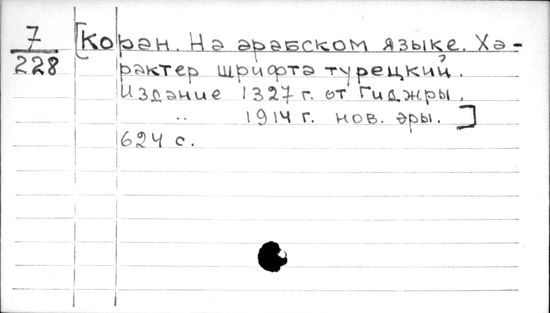 7
228
[Коран. На арабском языке. Ха-
рактер шрифта турецкий.
Издание 1327 г. от Гиджры.
" 1914 г. нов. эры.]
624 с.